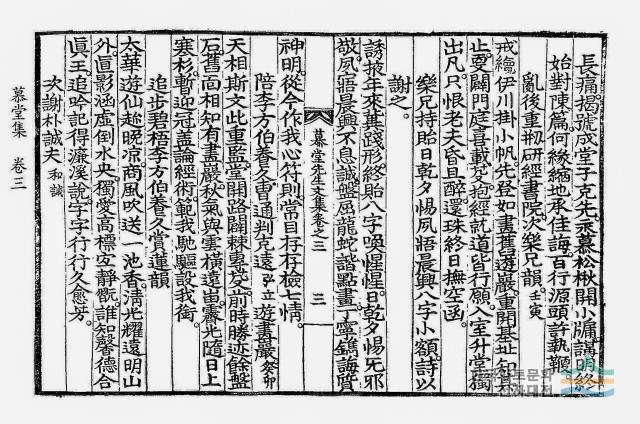 長痛揭號成堂子克先永慕松楸開小牖講明終
始對陳篇何緣縮地承佳誨百行源頭許執鞭
亂後重刱硏經書院次樂兄韻 壬寅
伊川掛小帆先登如畫舊遊嚴重開基址知其
止更闢門庭喜載芟抱經就道皆行願入室升堂獨
出凡只恨老夫昏且醉還珠終日撫空函
樂兄持貽日乾夕惕夙寤晨興八字小額詩以
謝之
誘掖年來甚踐形終貽八字喚惺惺日乾夕惕无邪
敬夙寤晨興不息誠盤屈龍蛇諧點畫丁寧鐫誨質
慕堂先生文集卷之三 三
神明從今作我心符則常目存存檢七情
陪李方伯養久曺通判克遠 弘立 遊畫巖 癸卯
天相斯文此重監堂開路闢棘芟前時勝迹餘盤
石舊面相知有畫巖秋氣與雲橫遠峀露光隨日上
寒杉暫迎冠蓋論經術範我馳驅設我銜
追步碧梧李方伯養久賞蓮韻
太華遊仙趁晩凉商風吹送一池香淸光耀遠明山
外眞影涵虛倒水央獨愛高標安靜誰知馨德合
眞王追吟記得濂溪說字字行行久愈芳
次謝朴誠夫 和議
慕堂集 卷三